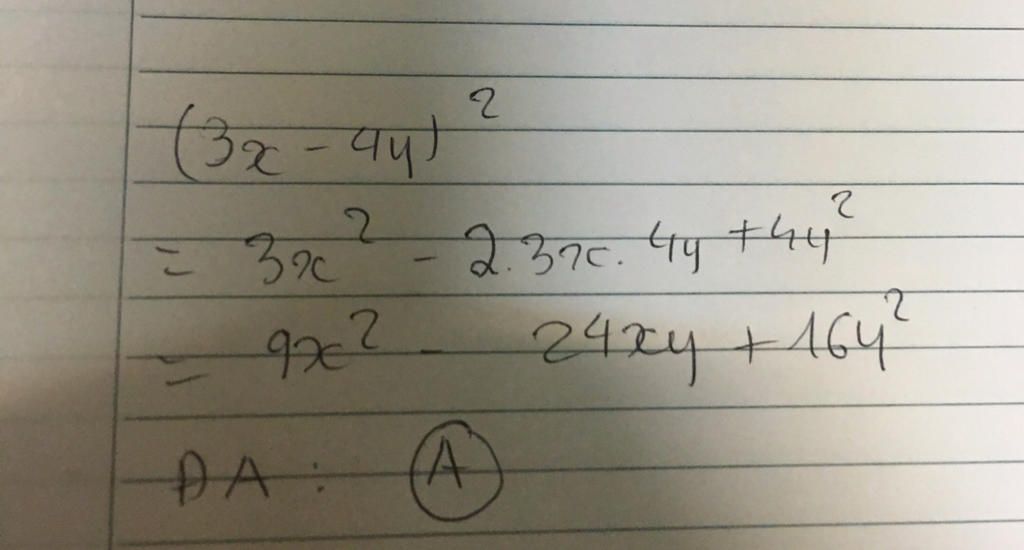 (3x - 4y)²
= 3x² - 2.3x.4y + 4y²
= 9x² - 24xy + 16y²
ĐA : A